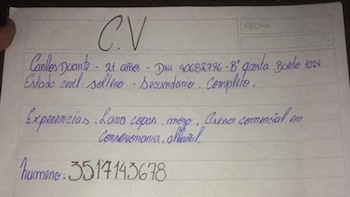 C.V
FECHA
Carlos Duarte - 21 años - DNI 40682796 - B° acosta Bordo 1024
Estado civil soltero - Secundario: Completo.
Experiencias: Lava copas, mozo, Arenor comercial en
Concesionaria, albañil.
numeno: 3517143678